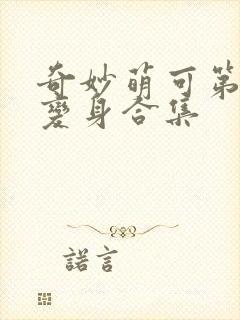 奇妙萌可第
变身合集
諾言